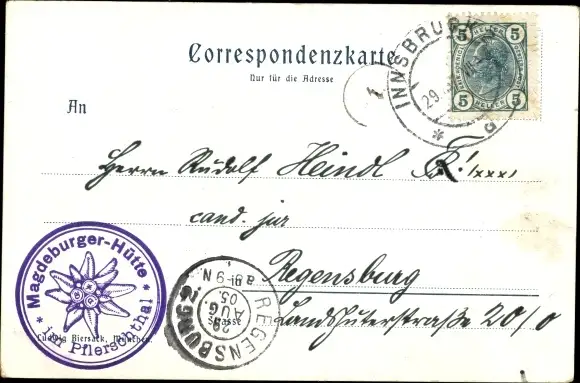 Correspondenzkarte
Nur für die Adresse
INNSBRUCK
29.
5 5
HELLER
5 5
An
Herrn Rudolf Heindl
cand. jur
Regensburg
Landshuterstraße 20/0
* Magdeburger-Hütte *
in Pflerschthal
REGENSBURG 2.
29
AUG.
05.
Ludwig Biersack, München.